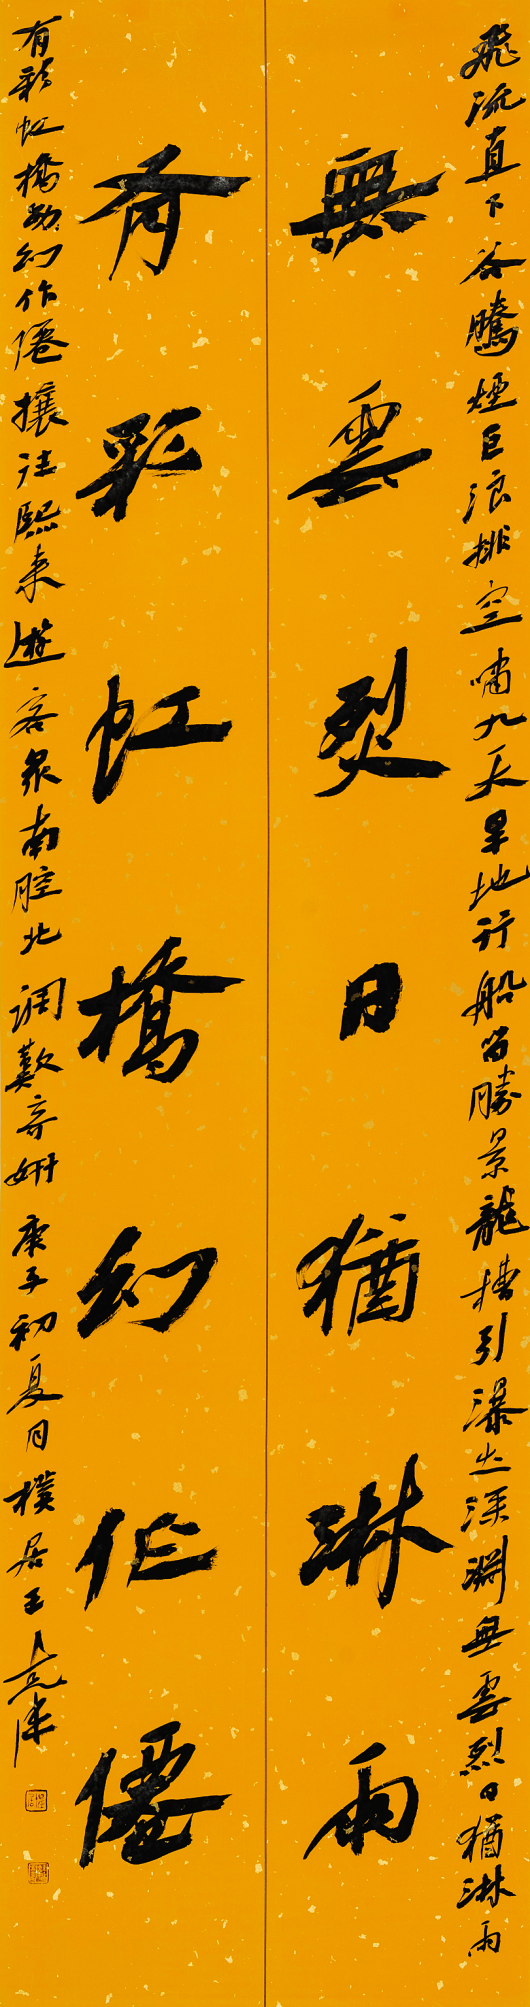 飛流直下谷騰煙巨浪排空嘯九天旱地行船留勝景龍槽引瀑出深淵無雲烈日猶淋雨
無雲烈日猶淋雨
有彩虹橋幻作僊
有彩虹橋幻作僊攘注熙来遊客衆南腔北調歎奇妍庚子初夏月樸居王